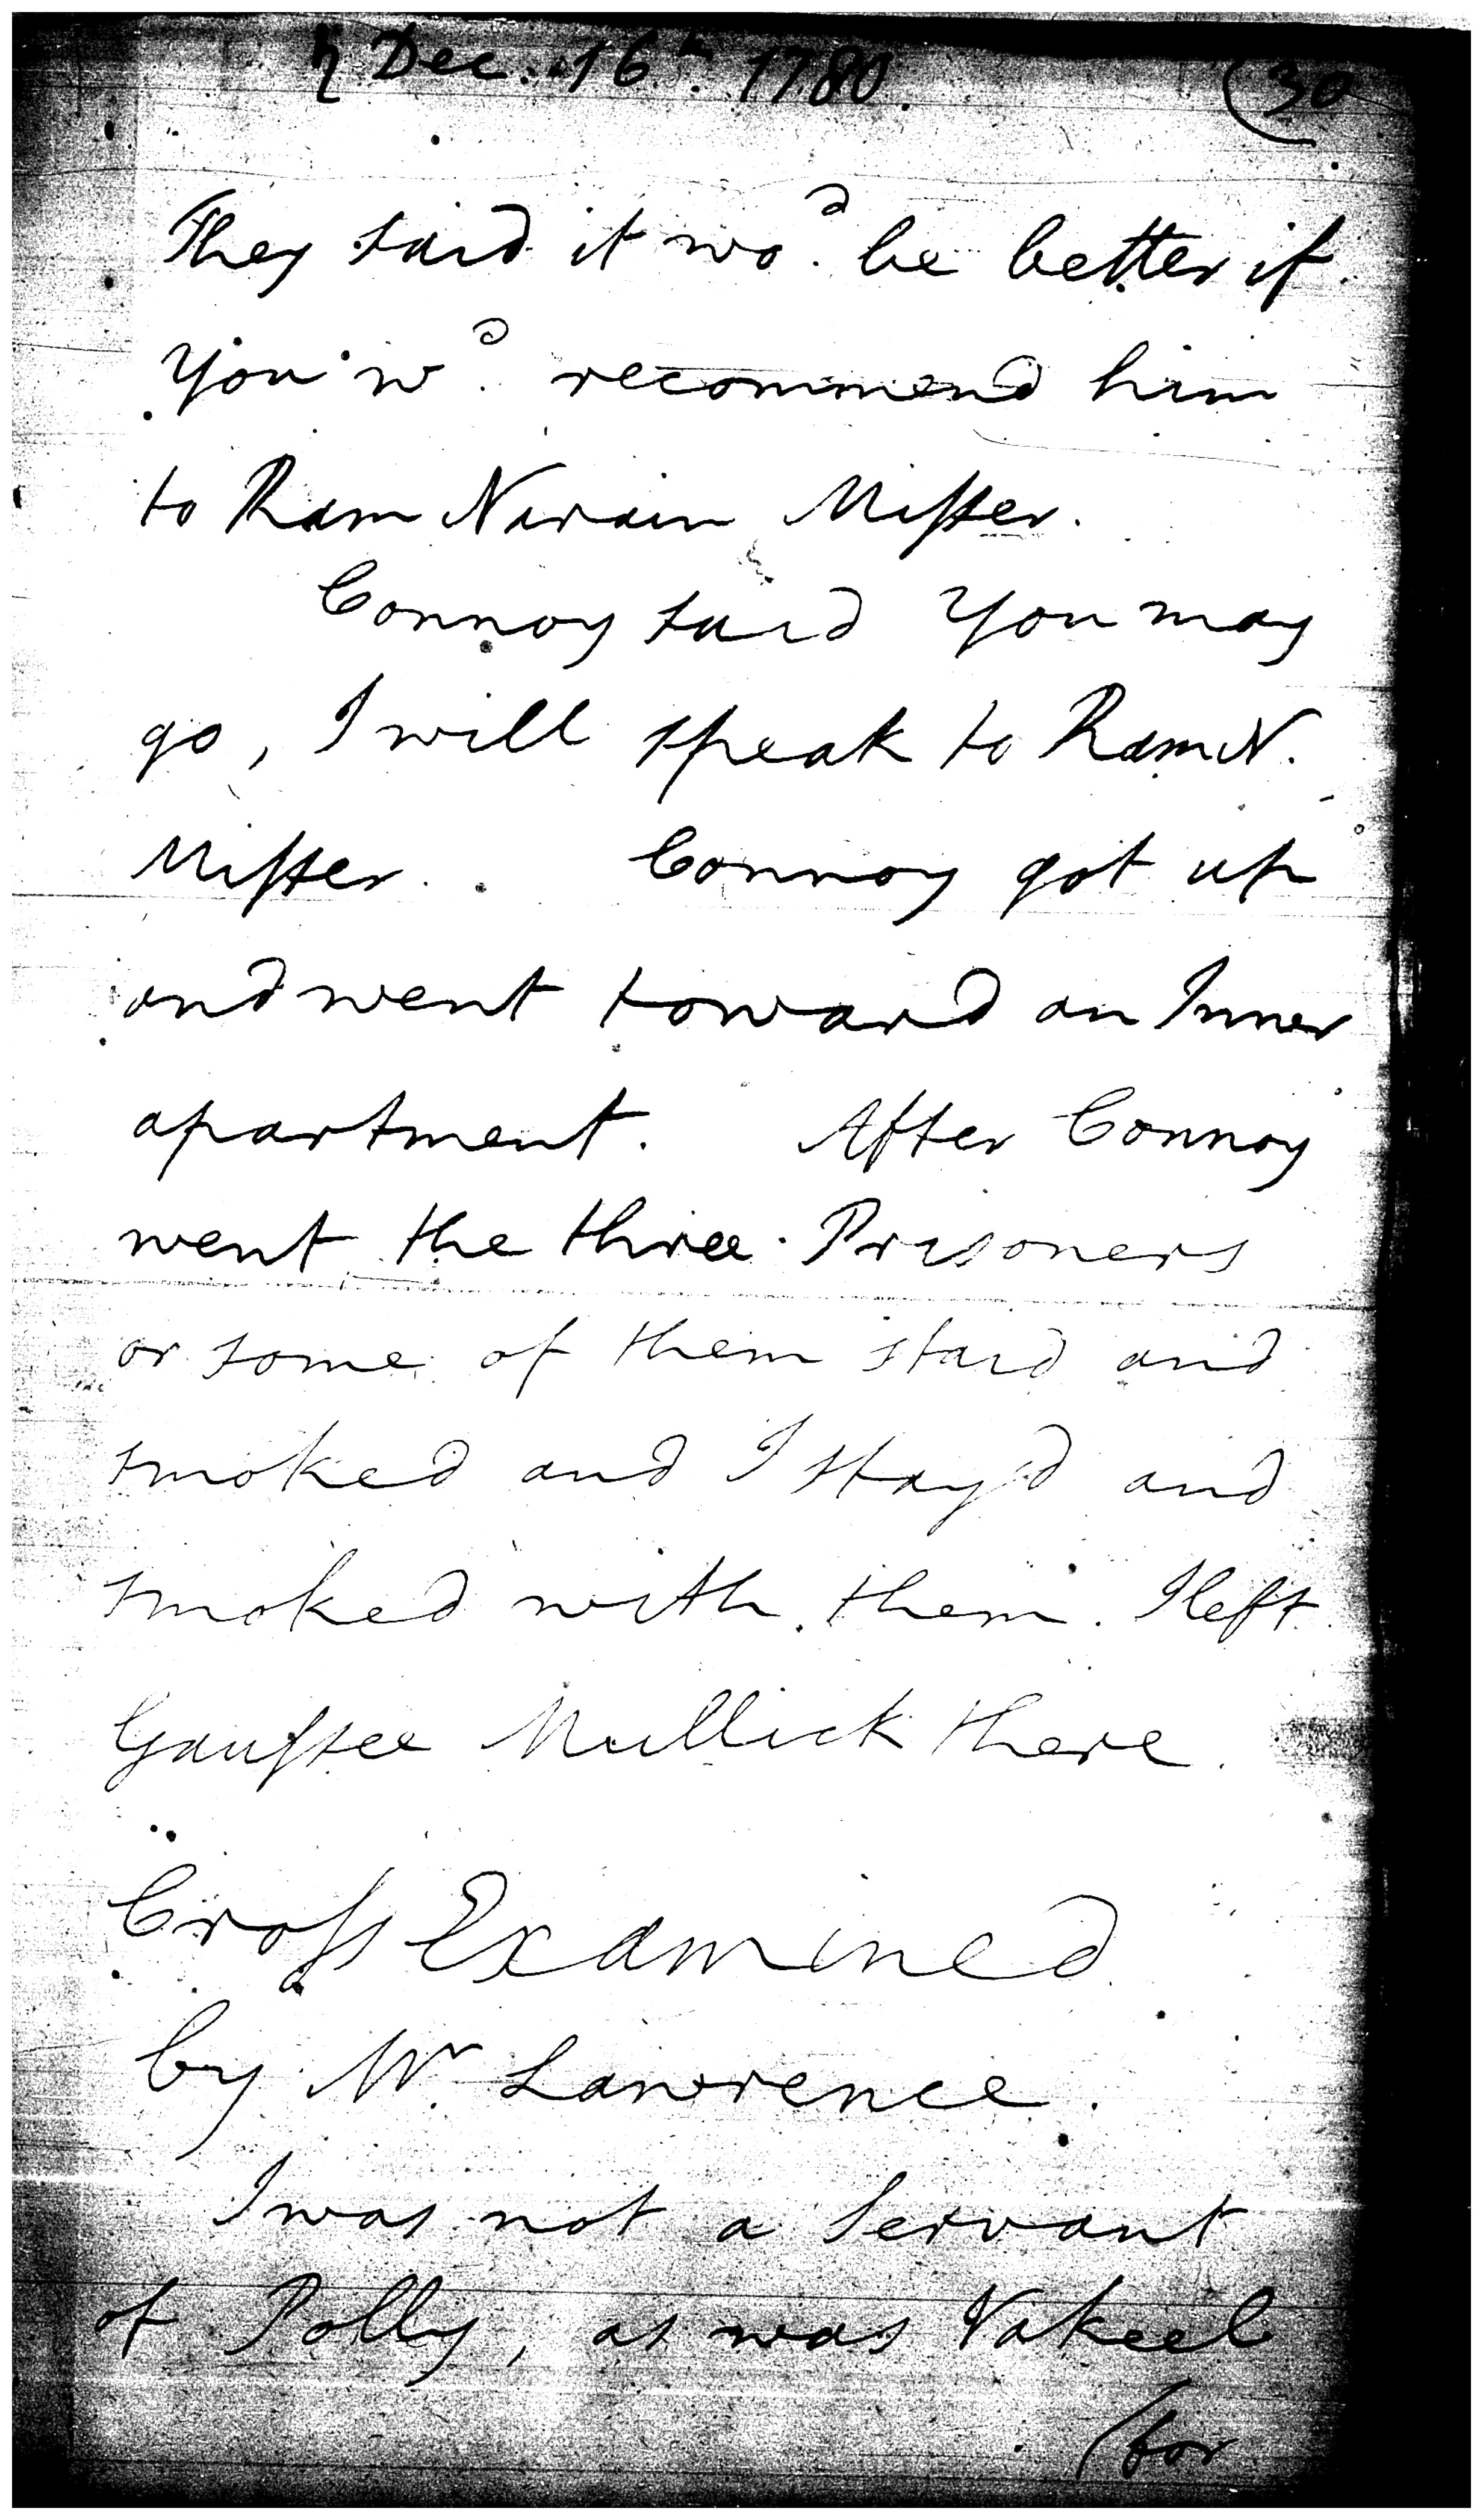 ♄ Dec. 16th. 1780. (30
They said it wod. be better if
You wd. recommend him
to Ram Narain Misser.
Connoy said You may
go, I will speak to Ram N.
Misser. Connoy got up
and went toward an Inner
apartment. After Connoy
went the three Prisoners
or some of them staid and
smoked and I stay'd and
smoked with them. I left
Mullick there.
Cross Examined
by Mr. Lawrence.
I was not a Servant
of Polly, as was Vakeel
(for